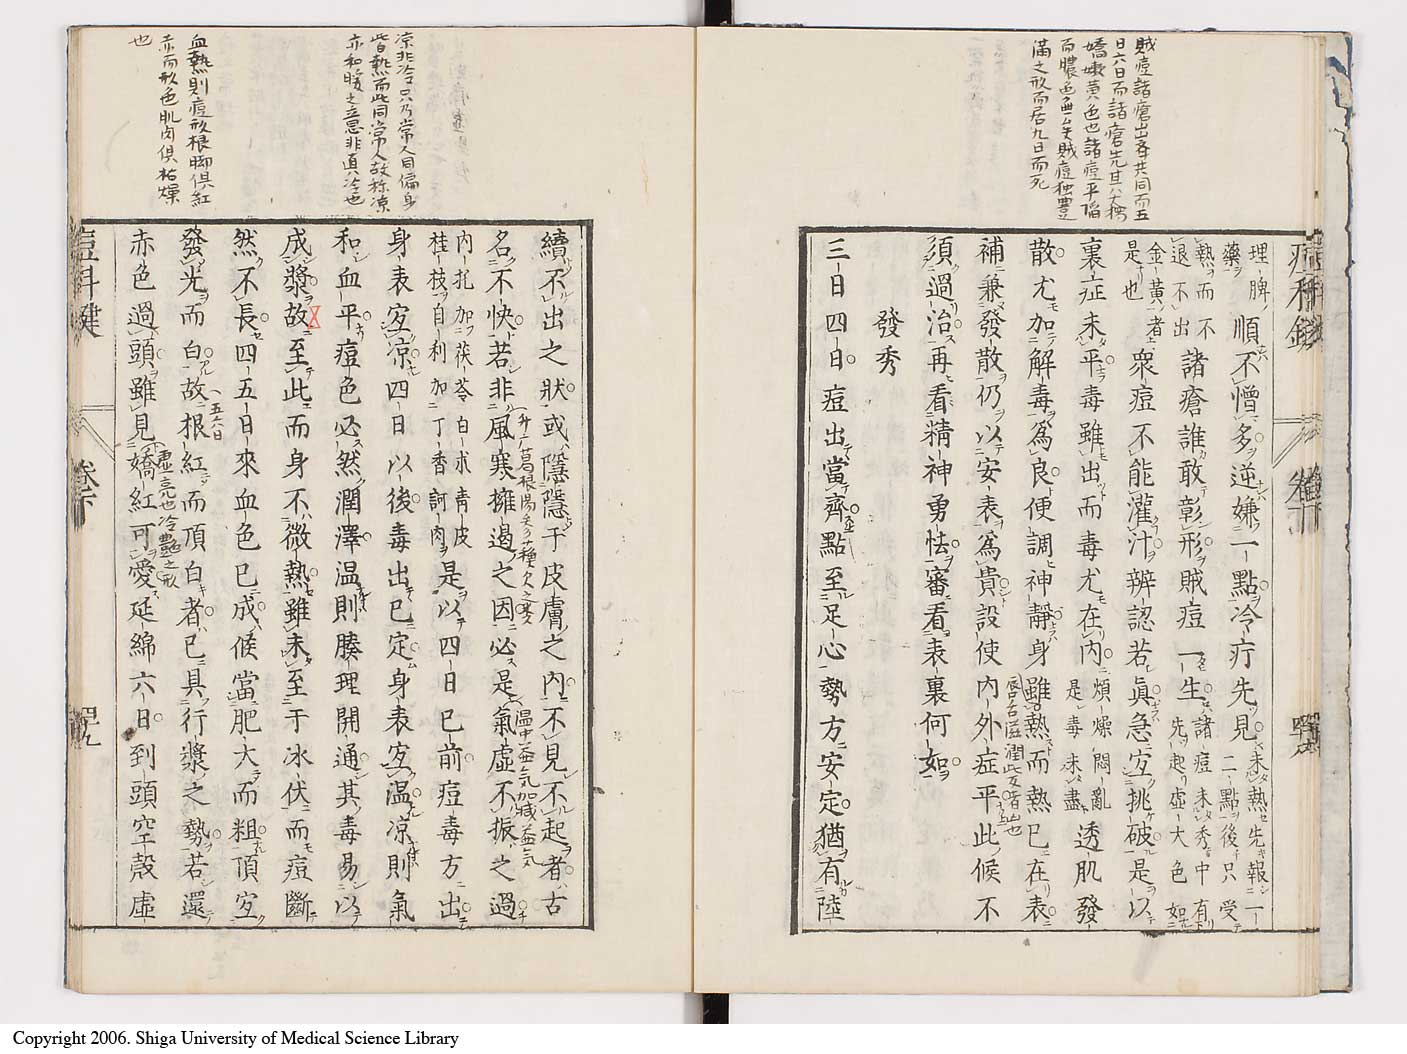 賊痘諸瘡出齊共同而五
日六日而諸瘡先甘大樗
嬌嫩黄色也諸痘平陷
而膿色無矣賊痘独豊
滿之形而居九日而死
理脾
藥
順不憎多逆嫌一點冷疔先見
未熱先報一
二點後只受
熱而不
退不出
諸瘡誰敢彰形賊痘一生
諸痘未秀中有
先起虚大色如
金黄者
是也
衆痘不能灌汁辨認若眞急宜挑破是以
裏症未平毒雖出而毒尤在内
煩燥悶亂
是毒未盡
透肌發
散尤加解毒爲良便調神靜身雖熱而熱已在表
唇舌滋潤此女者出也
補兼發散仍以安表爲貴設使内外症平此候不
須過治再看精神勇怯審看表裏何如
發秀
三日四日痘出當齊點至足心勢方安定猶有陸
痘科鍵
卷下
凉非冷只乃常人同偏身
皆熱而此同常人故称凉
亦和暖之意非真冷也
血熱則痘形根脚倶紅
赤而形色肌肉倶枯燥
也
續不出之狀或隱隱于皮膚之内不見不起者古
名不快若非風寒擁遏之因必是氣虚不振之過
升葛根湯
温中益氣加減益氣
内托加茯苓白朮青皮
桂枝自利加丁香訶肉
是以四日已前痘毒方出
身表宜凉四日以後毒出已定身表宜温凉則氣
和血平痘色必然潤澤温則腠理開通其毒易以
成漿故至此而身不微熱雖未至于冰伏而痘斷
然不長四五日來血色已成候當肥大而粗頂宜
發光而白故根紅而頂白者已具行漿之勢若還
五六日
赤色過頭雖見嬌紅可愛延綿六日到頭空殼虚
虚亮也冷艷之形
痘科鍵
卷下
四十九
Copyright 2006. Shiga University of Medical Science Library